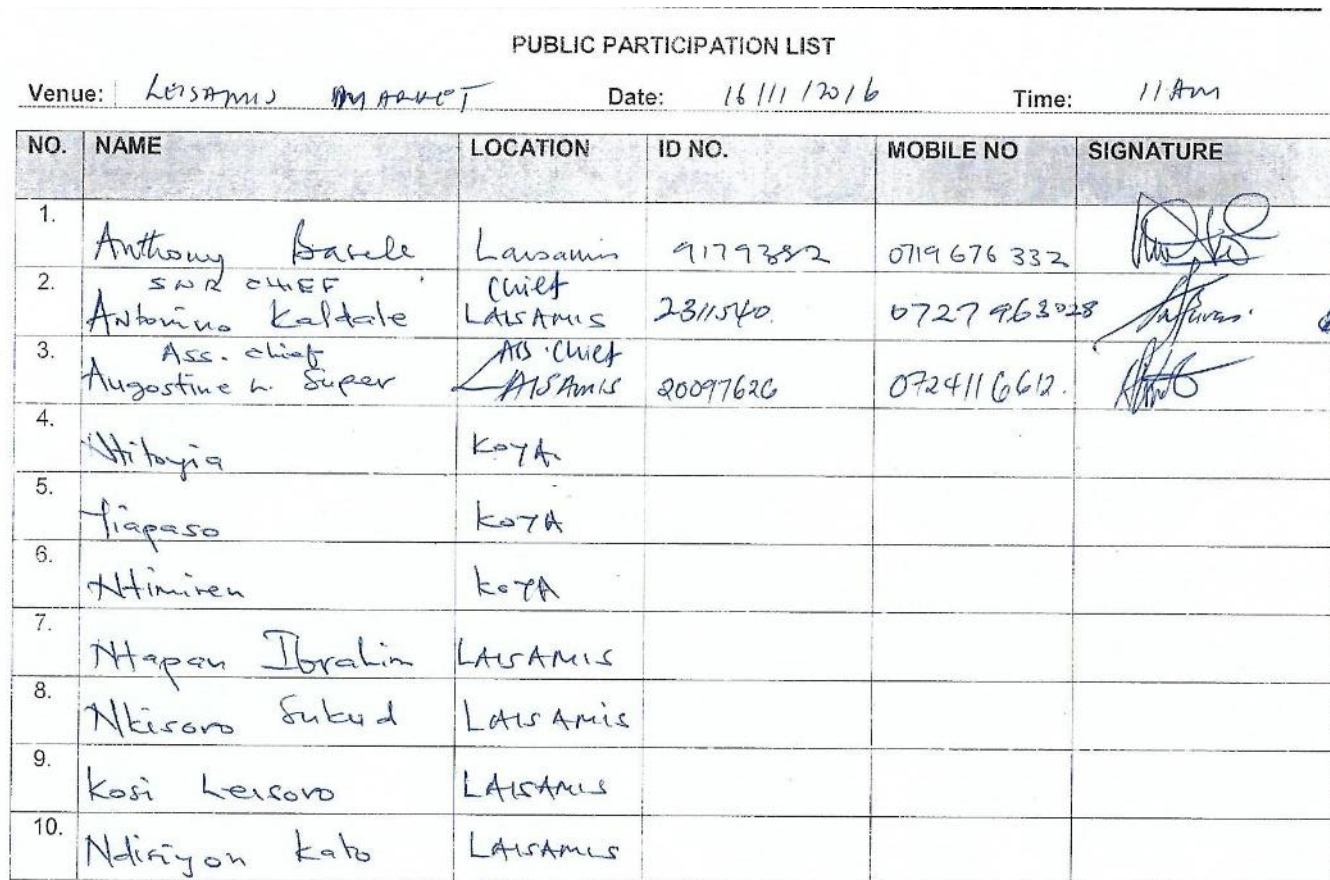 PUBLIC PARTICIPATION LIST
Venue: LEISAMIS MARKET Date: 16/11/2016 Time: 11 Am
NO. NAME LOCATION ID NO. MOBILE NO SIGNATURE
1. Anthony Basele Laisamis 9179382 0719 676 332
2. SNR CHIEF Chief
Antonino Kaldale LAISAMIS 2311540. 0727 963028
3. Ass. chief ASS. Chief
Augostine L. Super LAISAMIS 20097626 0724116612.
4. Ntitoyia KOYA
5. Tiapaso KOYA
6. Ntimiren KOYA
7. Ntapan Ibrahim LAISAMIS
8. Nkisoro Sukud LAISAMIS
9. Kosi Leisoro LAISAMIS
10. Ndiriyon Kato LAISAMIS